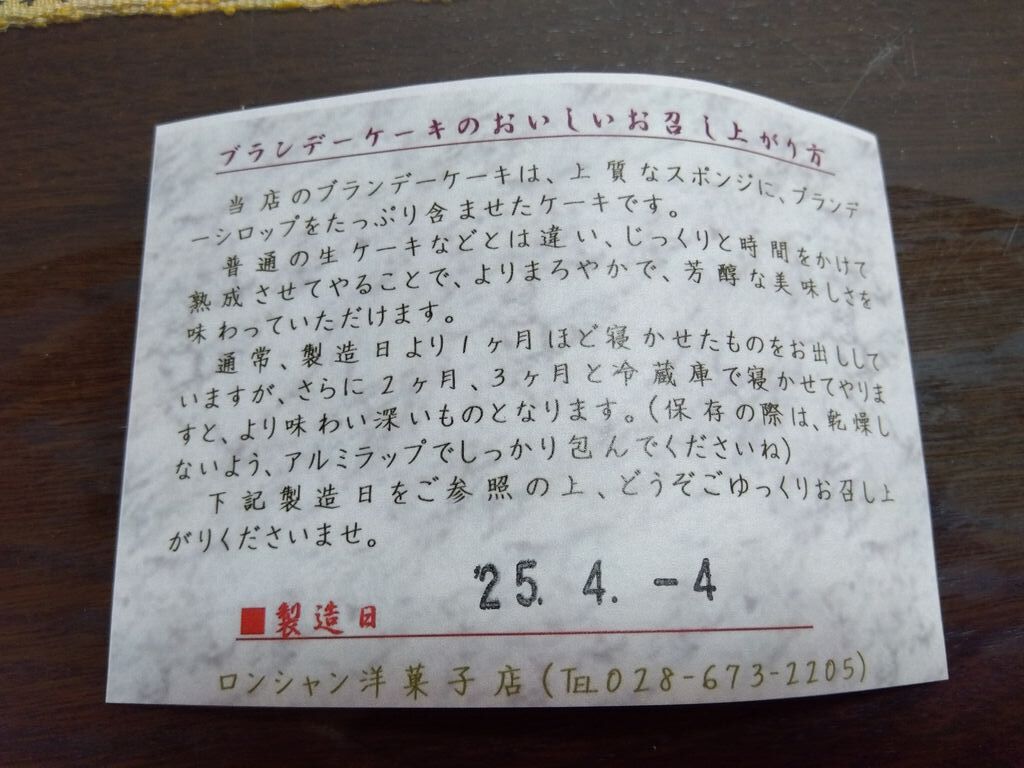 ブランデーケーキのおいしいお召し上がり方
当店のブランデーケーキは、上質なスポンジに、ブランデ
ーシロップをたっぷり含ませたケーキです。
普通の生ケーキなどとは違い、じっくりと時間をかけて
熟成させてやることで、よりまろやかで、芳醇な美味しさを
味わっていただけます。
通常、製造日より1ヶ月ほど寝かせたものをお出しして
いますが、さらに2ヶ月、3ヶ月と冷蔵庫で寝かせてやりま
すと、より味わい深いものとなります。(保存の際は、乾燥し
ないよう、アルミラップでしっかり包んでくださいね)
下記製造日をご参照の上、どうぞごゆっくりお召し上
がりくださいませ。
'25. 4. -4
■製造日
ロンシャン洋菓子店(TEL028-673-2205)